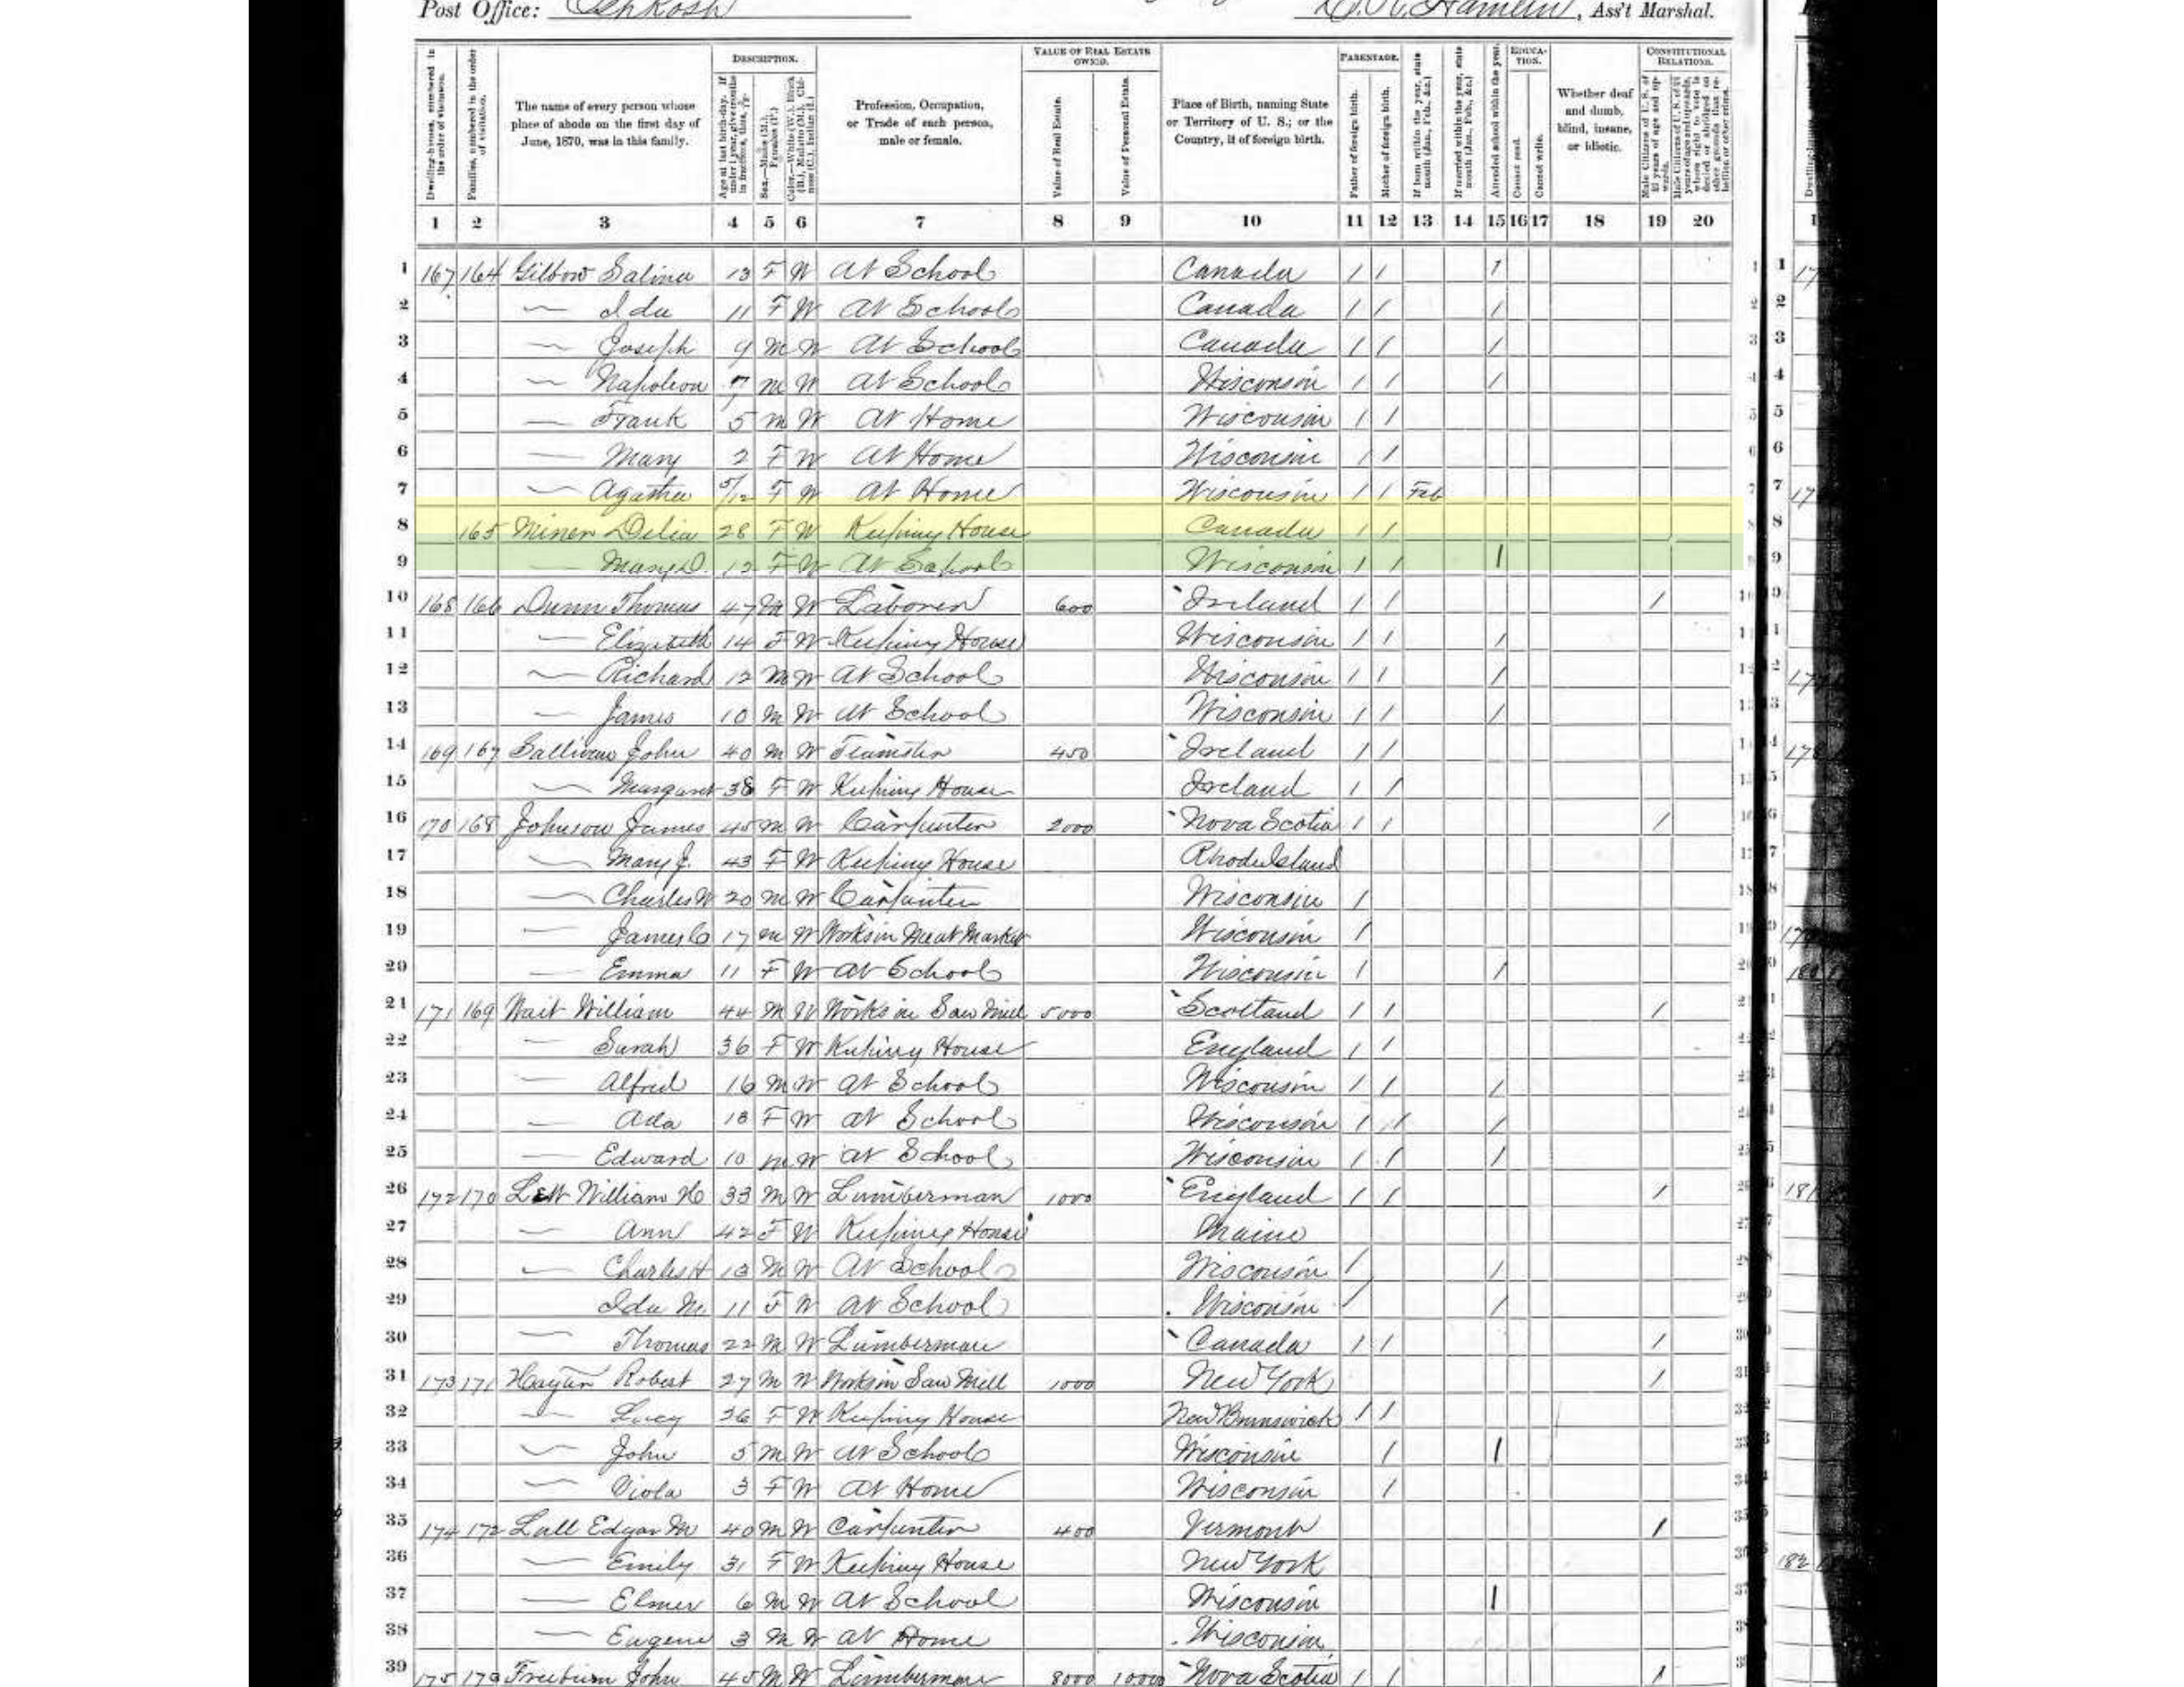 Post Office: Oshkosh D. R. Hamlin, Ass't Marshal.
Dwelling-houses, numbered in the order of visitation.
Families, numbered in the order of visitation.
The name of every person whose place of abode on the first day of June, 1870, was in this family.
DESCRIPTION.
Age at last birth-day. If under 1 year, give months in fractions, thus, 3/12.
Sex.—Males (M.), Females (F.)
Color.—White (W.), Black (B.), Mulatto (M.), Chinese (C.), Indian (I.)
Profession, Occupation, or Trade of each person, male or female.
VALUE OF REAL ESTATE OWNED.
Value of Real Estate.
Value of Personal Estate.
Place of Birth, naming State or Territory of U. S.; or the Country, if of foreign birth.
PARENTAGE.
Father of foreign birth.
Mother of foreign birth.
If born within the year, state month (Jan., Feb., &c.)
If married within the year, state month (Jan., Feb., &c.)
Attended school within the year.
EDUCATION.
Cannot read.
Cannot write.
Whether deaf and dumb, blind, insane, or idiotic.
CONSTITUTIONAL RELATIONS.
Male Citizens of U. S. of 21 years of age and upwards.
Male Citizens of U. S. of 21 years of age and upwards, whose right to vote is denied or abridged on other grounds than rebellion or other crime.
1 2 3 4 5 6 7 8 9 10 11 12 13 14 15 16 17 18 19 20
1 167 164 Gilbow Salina 13 F W At School Canada / / /
2 — Ida 11 F W At School Canada / / /
3 — Joseph 9 M W At School Canada / / /
4 — Napoleon 7 M W At School Wisconsin / / /
5 — Frank 5 M W At Home Wisconsin / /
6 — Mary 2 F W At Home Wisconsin / /
7 — Agatha 5/12 F W At Home Wisconsin / / Feb
8 165 Miner Delia 28 F W Keeping House Canada / /
9 — Mary D. 12 F W At School Wisconsin / / /
10 168 166 Dunn Thomas 47 M W Laborer 600 Ireland / / /
11 — Elizabeth 14 F W Keeping House Wisconsin / / /
12 — Richard 12 M W At School Wisconsin / / /
13 — James 10 M W At School Wisconsin / / /
14 169 167 Sullivan John 40 M W Teamster 450 Ireland / /
15 — Margaret 38 F W Keeping House Ireland / /
16 170 168 Johnson James 45 M W Carpenter 2000 Nova Scotia / / /
17 — Mary J. 43 F W Keeping House Rhode Island
18 — Charles W 20 M W Carpenter Wisconsin /
19 — James C 17 M W Works in Meat Market Wisconsin /
20 — Emma 11 F W At School Wisconsin / /
21 171 169 Wait William 44 M W Works in Saw Mill 5000 Scotland / / /
22 — Sarah 36 F W Keeping House England / /
23 — Alfred 16 M W At School Wisconsin / / /
24 — Ada 13 F W At School Wisconsin / / /
25 — Edward 10 M W At School Wisconsin / / /
26 172 170 William H 33 M W Lumberman 1000 England / / /
27 — Ann 42 F W Keeping House Maine
28 — Charles H 13 M W At School Wisconsin / /
29 Ida M. 11 F W At School Wisconsin / /
30 — Thomas 22 M W Lumberman Canada / / /
31 173 171 Robert 27 M W Works in Saw Mill 1000 New York /
32 — Lucy 36 F W Keeping House New Brunswick / /
33 — John 5 M W At School Wisconsin / /
34 — Viola 3 F W At Home Wisconsin /
35 174 172 Lull Edgar M 40 M W Carpenter 400 Vermont /
36 — Emily 31 F W Keeping House New York
37 — Elmer 6 M W At School Wisconsin /
38 — Eugene 3 M W At Home Wisconsin
39 175 173 John 45 M W Lumberman 8000 10000 Nova Scotia / / /